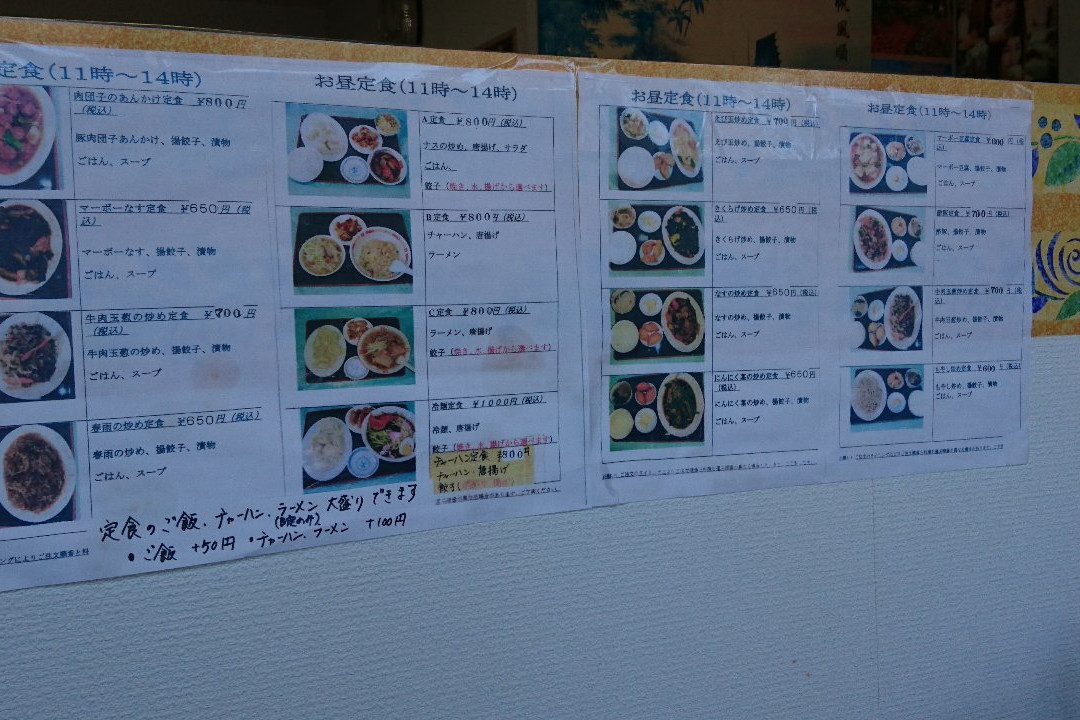 定食(11時～14時)
肉団子のあんかけ定食 ¥800円
(税込)
豚肉団子あんかけ、揚餃子、漬物
ごはん、スープ
マーボーなす定食 ¥650円(税
込)
マーボーなす、揚餃子、漬物
ごはん、スープ
牛肉玉葱の炒め定食 ¥700円
(税込)
牛肉玉葱の炒め、揚餃子、漬物
ごはん、スープ
春雨の炒め定食 ¥650円(税込)
春雨の炒め、揚餃子、漬物
ごはん、スープ
お昼定食(11時～14時)
A定食 ¥800円(税込)
ナスの炒め、唐揚げ、サラダ
ごはん、
餃子(焼き、水、揚げから選べます)
B定食 ¥800円(税込)
チャーハン、唐揚げ
ラーメン
C定食 ¥800円(税込)
ラーメン、唐揚げ
餃子(焼き、水、揚げから選べます)
冷麺定食 ¥1000円(税込)
冷麺、唐揚げ
餃子(焼き、水、揚げから選べます)
チャーハン定食 ¥800円
チャーハン・唐揚げ
定食のご飯・チャーハン・ラーメン 大盛りできます
•ご飯 +50円 •チャーハン・ラーメン +100円
お昼定食(11時～14時)
えび玉炒め定食 ¥700円(税込)
えび玉炒め、揚餃子、漬物
ごはん、スープ
きくらげ炒め定食 ¥650円(税
込)
きくらげ炒め、揚餃子、漬物
ごはん、スープ
なすの炒め定食 ¥650円(税込)
なすの炒め、揚餃子、漬物
ごはん、スープ
にんにく茎の炒め定食 ¥650円
(税込)
にんにく茎の炒め、揚餃子、漬物
ごはん、スープ
お昼定食(11時～14時)
マーボー豆腐定食
マーボー豆腐、揚餃子、漬物
ごはん、スープ
酢豚定食 ¥700円(税込)
酢豚、揚餃子、漬物
ごはん、スープ
牛肉玉葱炒め定食 ¥700円(税
込)
牛肉玉葱炒め、揚餃子、漬物
ごはん、スープ
もやし炒め定食 ¥600円(税込)
もやし炒め、揚餃子、漬物
ごはん、スープ